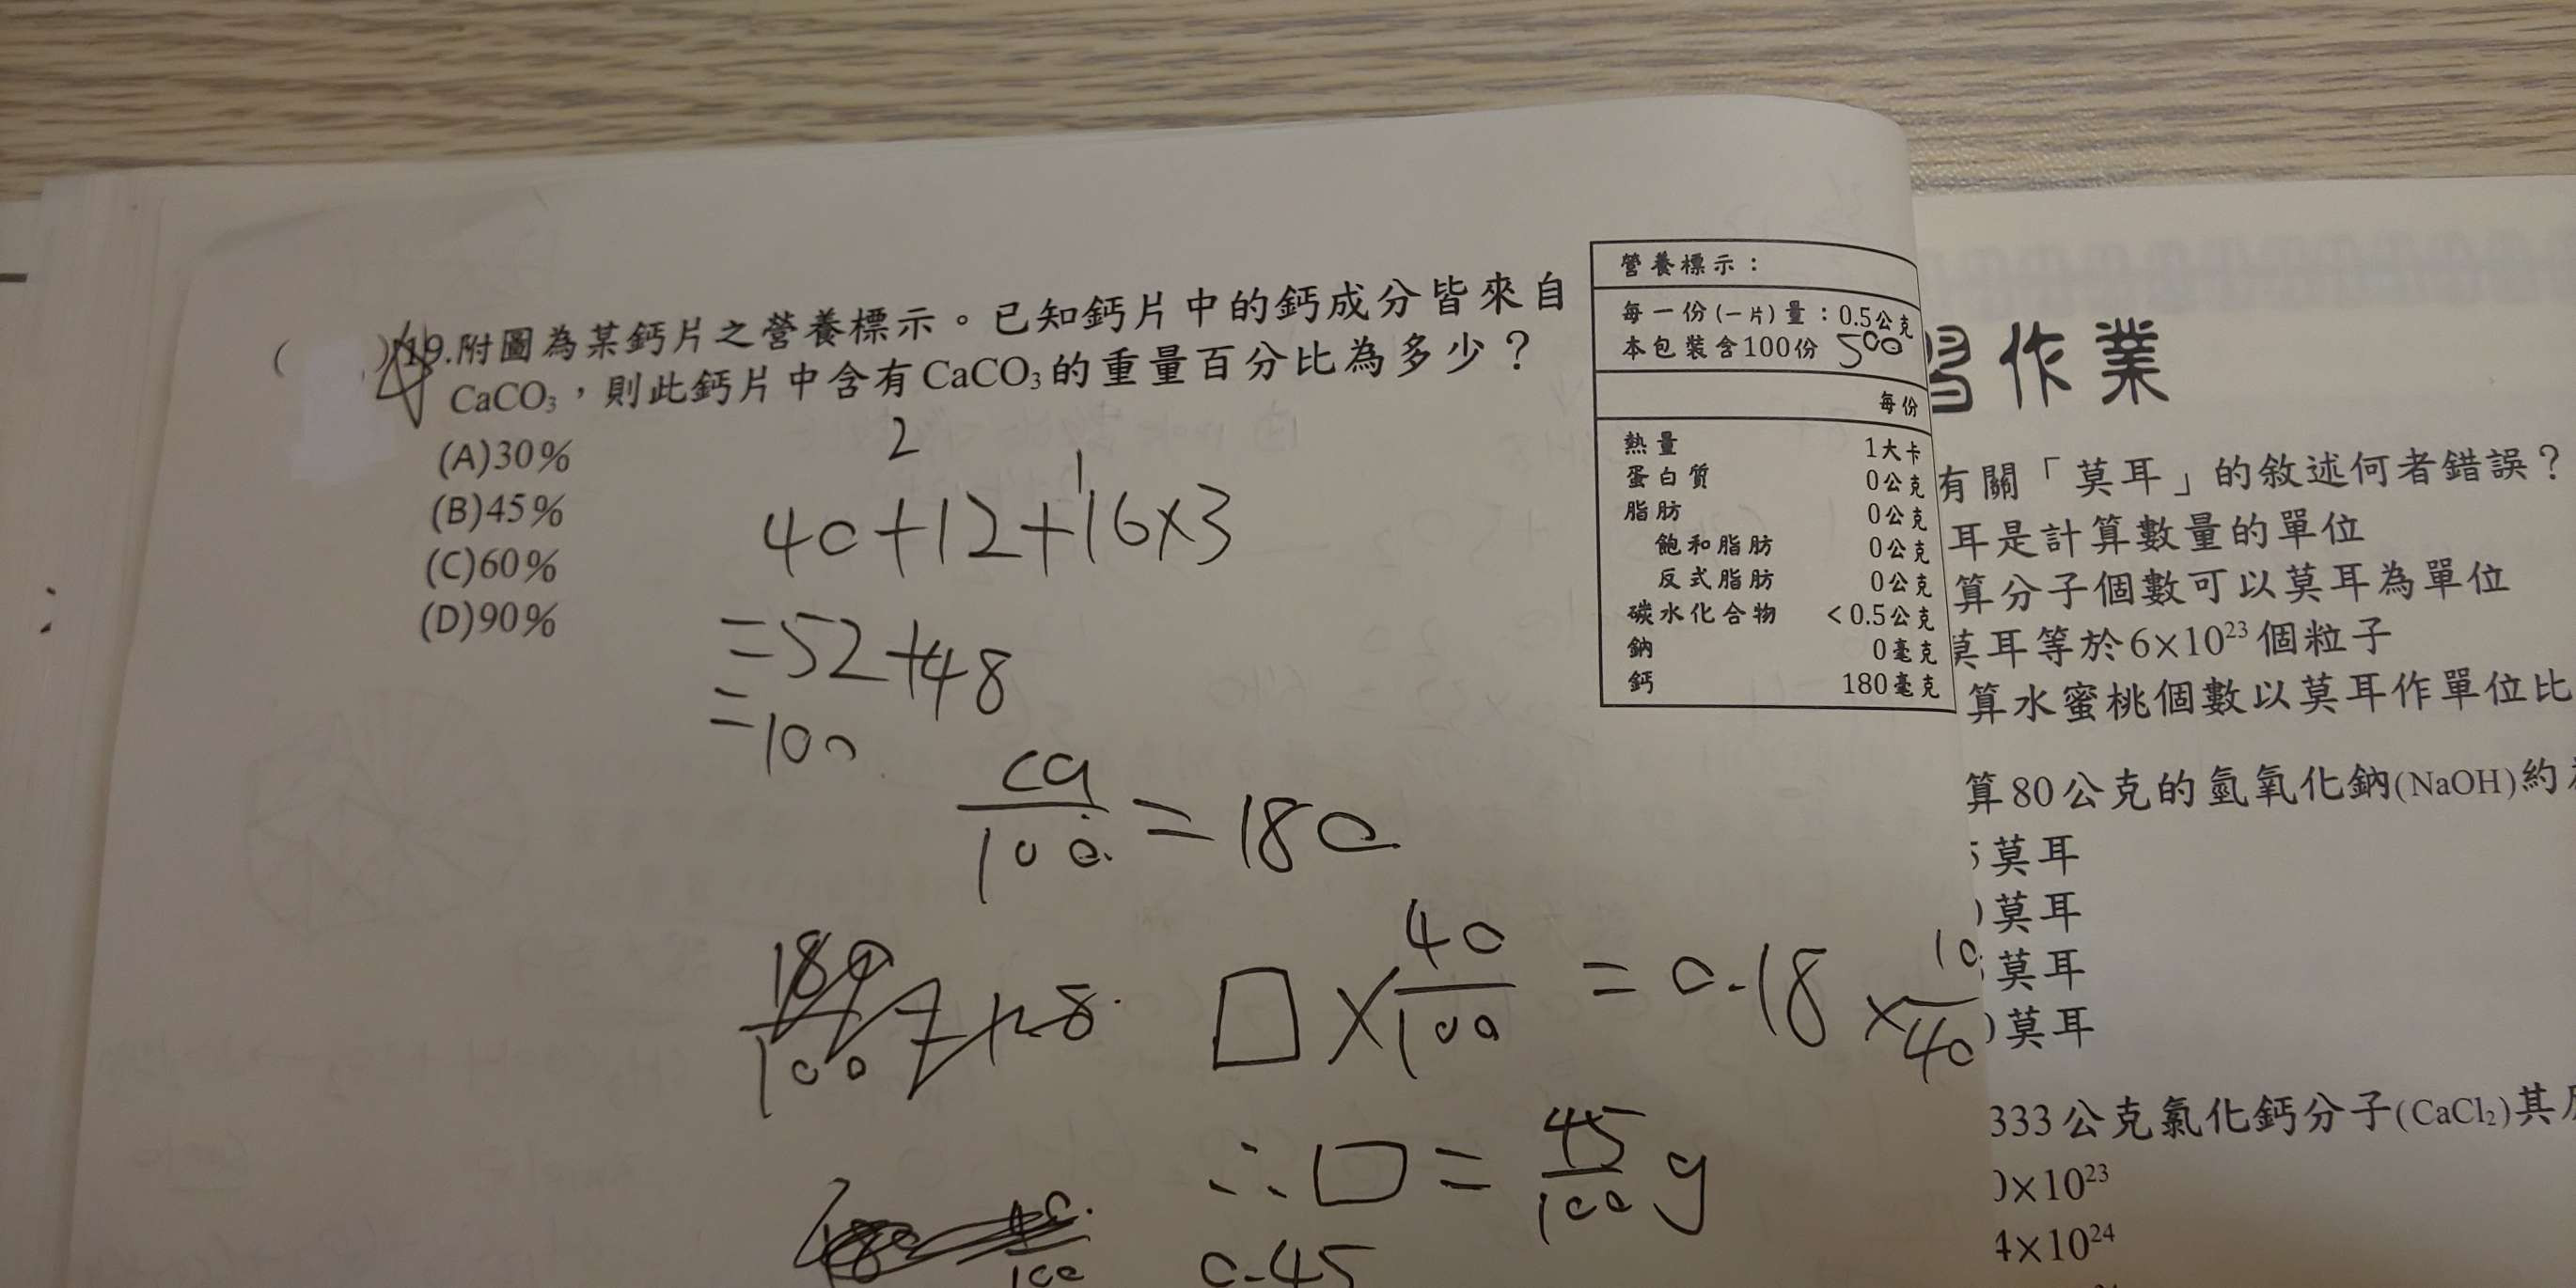 ( )19.附圖為某鈣片之營養標示。已知鈣片中的鈣成分皆來自
CaCO₃,則此鈣片中含有CaCO₃的重量百分比為多少?
(A)30%
(B)45%
(C)60%
(D)90%
營養標示:
每一份(一片)量:0.5公克
本包裝含100份 500
每份
熱量 1大卡
蛋白質 0公克
脂肪 0公克
飽和脂肪 0公克
反式脂肪 0公克
碳水化合物 <0.5公克
鈉 0毫克
鈣 180毫克
2
1
40+12+16×3
=52+48
=100
ca/100=180
180/100=1.8
□×40/100=0.18×10/40
∴□=45/100 g
0.45
習作業
有關「莫耳」的敘述何者錯誤?
耳是計算數量的單位
算分子個數可以莫耳為單位
莫耳等於6×10²³個粒子
算水蜜桃個數以莫耳作單位比
算80公克的氫氧化鈉(NaOH)約
莫耳
莫耳
莫耳
莫耳
333公克氯化鈣分子(CaCl₂)其
0×10²³
4×10²⁴